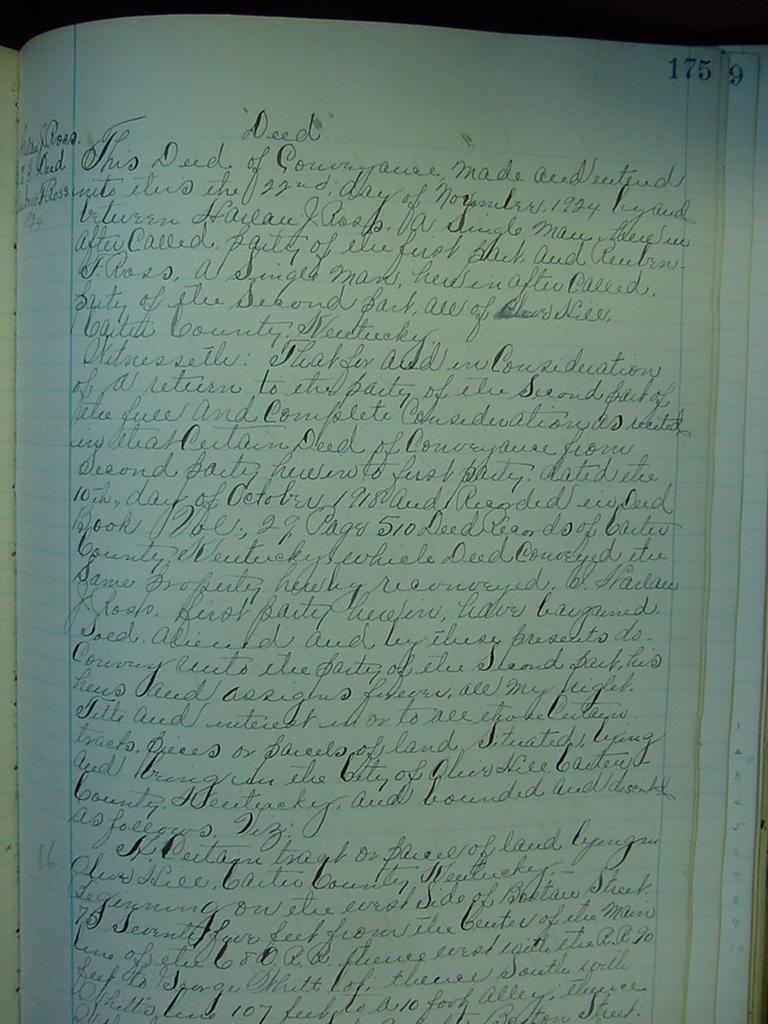 175
9
"Deed"
J. Ross.
Deed
Ross
1924
This Deed of Conveyance, made and entered
into this the 22nd, day of November, 1924 by and
between Harlan J. Ross. (A Single Man, here in
after Called, party of the first part. And Reuben
F. Ross, A Single Man, here in after Called,
party of the Second part, all of Olive Hill,
Carter County, Kentucky.
Witnesseth: That for and in Consideration
of a return to the party of the Second part of
the full and Complete Consideration as recited
in that Certain Deed of Conveyance from
Second party herein to first party. dated the
10th, day of October, 1918 And Recorded in Deed
Book Vol., 29, Page 510 Deed Records of Carter
County, Kentucky, which Deed Conveyed the
Same property hereby reconveyed, Harlan
J. Ross. first party herein, have bargained.
Soed. Aliened and by these presents do-
Convey unto the party of the Second part, his
heirs and assigns forever, all my right.
Title and interest in or to all those Certain
tracts, pieces or parcels of land, Situated, lying
and being in the City of Olive Hill Carter
County. Kentucky, and bounded and described
as follows. Viz:
A Certain tract or parcel of land lying in
Olive Hill, Carter County, Kentucky,
Beginning on the west side of Bostan Street.
75 Seventy five feet from the Center of the Main
line of the C & O. R.R. thence west with the R.R. 90
feet to George Whitt lot, thence South with
Whitts line 107 feet to a 10 foot alley; thence
Boston Street:
86
1
2
3
4
5
6
7
8
9
10